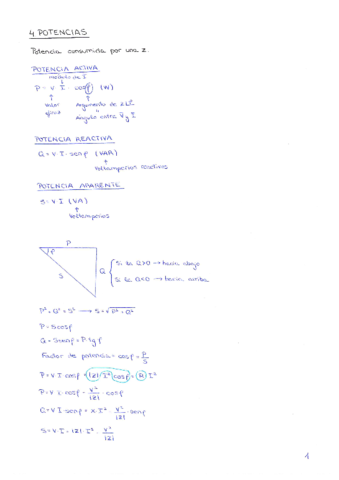 4 POTENCIAS
Potencia consumida por una Z
POTENCIA ACTIVA
modulo de I
P = V I · cosφ (W)
valor Argumento de Z
eficaz ángulo entre V y I
POTENCIA REACTIVA
Q = V I · senφ (VAR)
Voltamperios reactivos
POTENCIA APARENTE
S = V I (VA)
Voltamperios
P
φ
S
Q
Si Q>0 → hacia abajo
Si Q<0 → hacia arriba
P² + Q² = S² → S = √P² + Q²
P = S cosφ
Q = S senφ = P tg φ
Factor de potencia = cosφ = P/S
P = V I cosφ = |Z| I² cosφ = R I²
P = V I · cosφ = V²/|Z| · cosφ
Q = V I senφ = X · I² = V²/|Z| · senφ
S = V · I = |Z| · I² = V²/|Z|
1